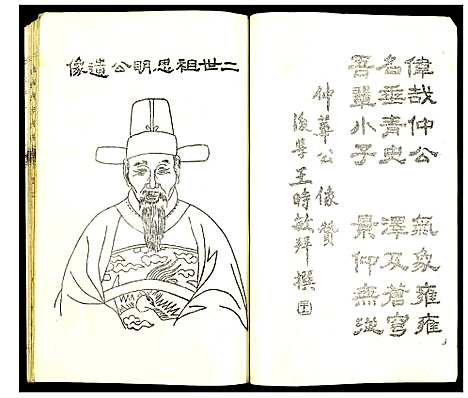 偉哉仲公 氣象雍雍
名垂青史 澤及蒼穹
吾輩小子 景仰無從
仲華公像贊
後學王時敏拜撰
二世祖思明公遺像